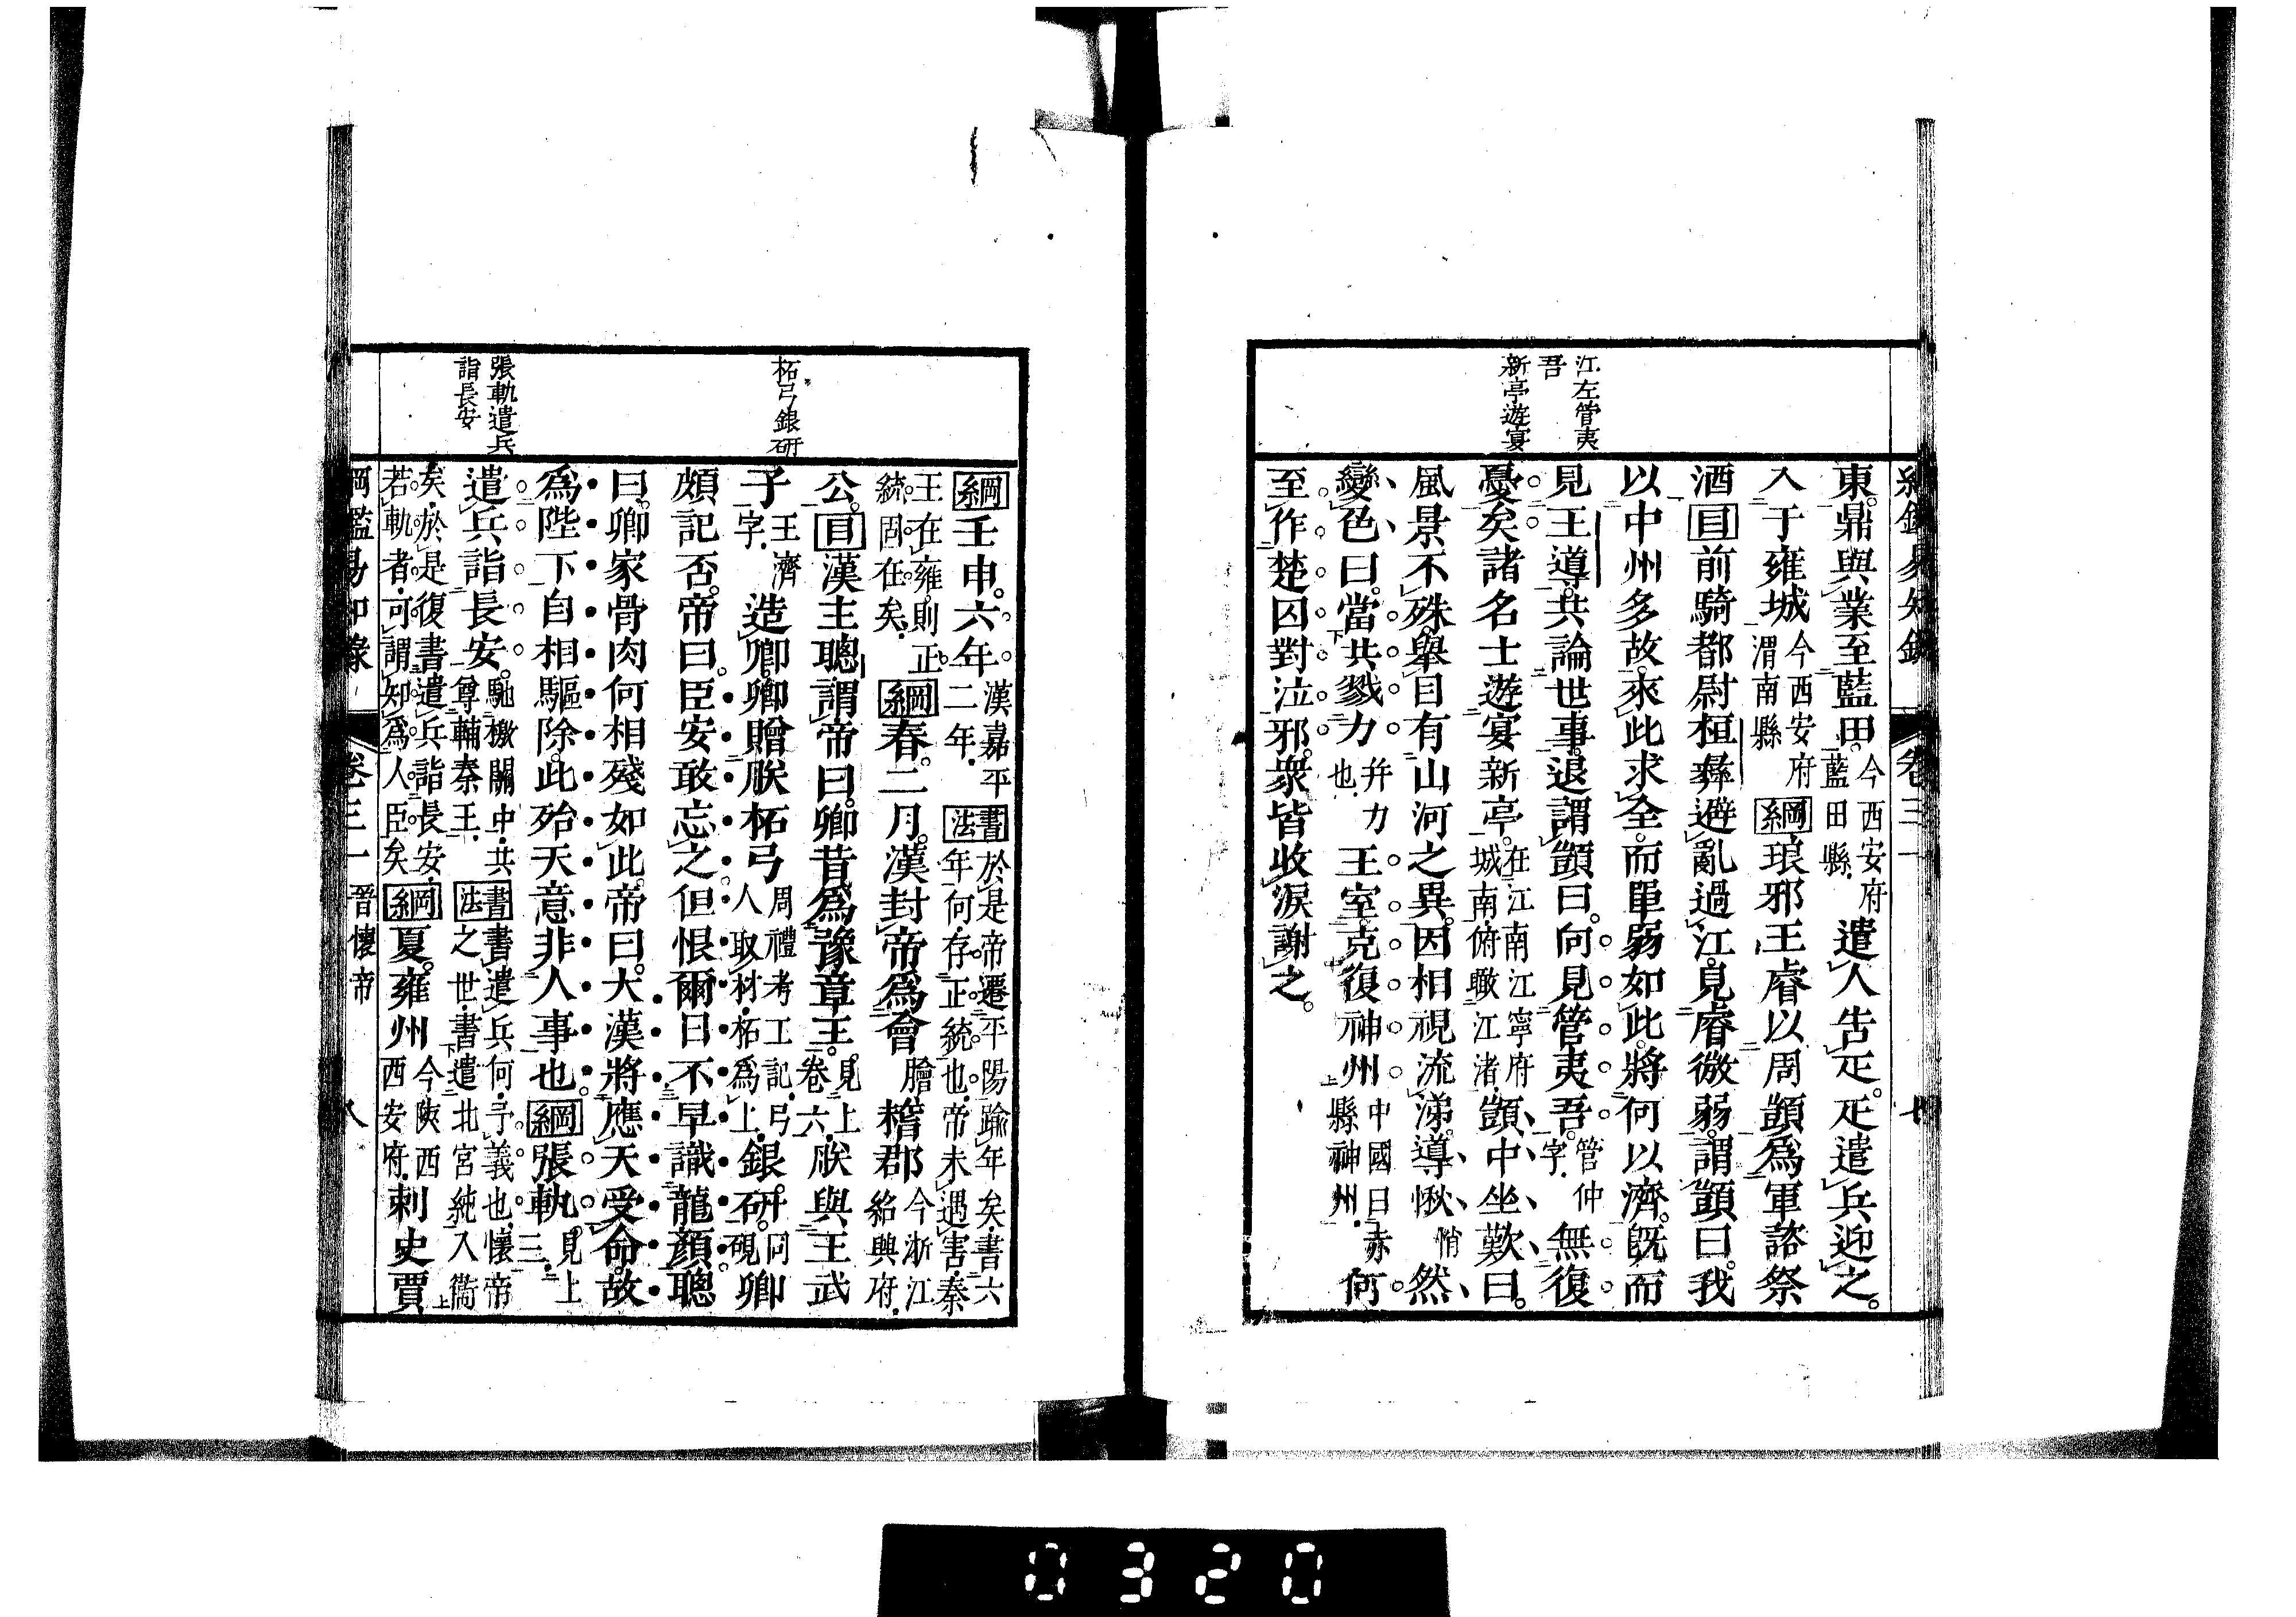 江左管夷
吾
新亭遊宴
東。鼎與業至藍田。今西安府藍田縣。遣人告疋。疋遣兵迎之。
入于雍城今西安府渭南縣【綱】琅邪王睿以周顗爲軍諮祭
酒【目】前騎都尉桓彝避亂過江。見睿微弱。謂顗曰。我
以中州多故。來此求全。而單弱如此。將何以濟。既而
見王導。共論世事。退謂顗曰。向見管夷吾。管仲字。無復
憂矣。諸名士遊宴新亭。在江南江寧府城南俯瞰江渚。顗中坐歎曰。
風景不殊。舉目有山河之異。因相視流涕。導愀悄然
變色曰。當共戮力并力也。王室。克復神州中國曰赤縣神州。何
至作楚囚對泣邪。衆皆收淚謝之。
卷三一
柘弓銀研
張軌遣兵
詣長安
【綱】壬申。六年。漢嘉平二年。【書法】於是帝遷平陽踰年矣。書六年何。存正統也。帝未遇害。秦
王在雍。則正統固在矣。【綱】春。二月。漢封帝爲會膾稽郡今浙江紹興府。
公。【目】漢主聰謂帝曰。卿昔爲豫章王。見上卷六。朕與王武
子王濟字。造卿。卿贈朕柘弓周禮考工記。弓人取材。柘爲上。銀研。同硯卿
頗記否。帝曰。臣安敢忘之。但恨爾日不早識龍顏。聰
曰。卿家骨肉何相殘如此。帝曰。大漢將應天受命。故
爲陛下自相驅除。此殆天意。非人事也。【綱】張軌。見上三。
遣兵詣長安。馳檄關中。共尊輔秦王。【書法】書遣兵何。予義也。懷帝之世。書遣北宮純入衞
矣。於是復書遣兵詣長安。若軌者。可謂知爲人臣矣【綱】夏。雍州今陝西西安府。刺史賈
綱鑑易知錄　卷三一　晉懷帝　八